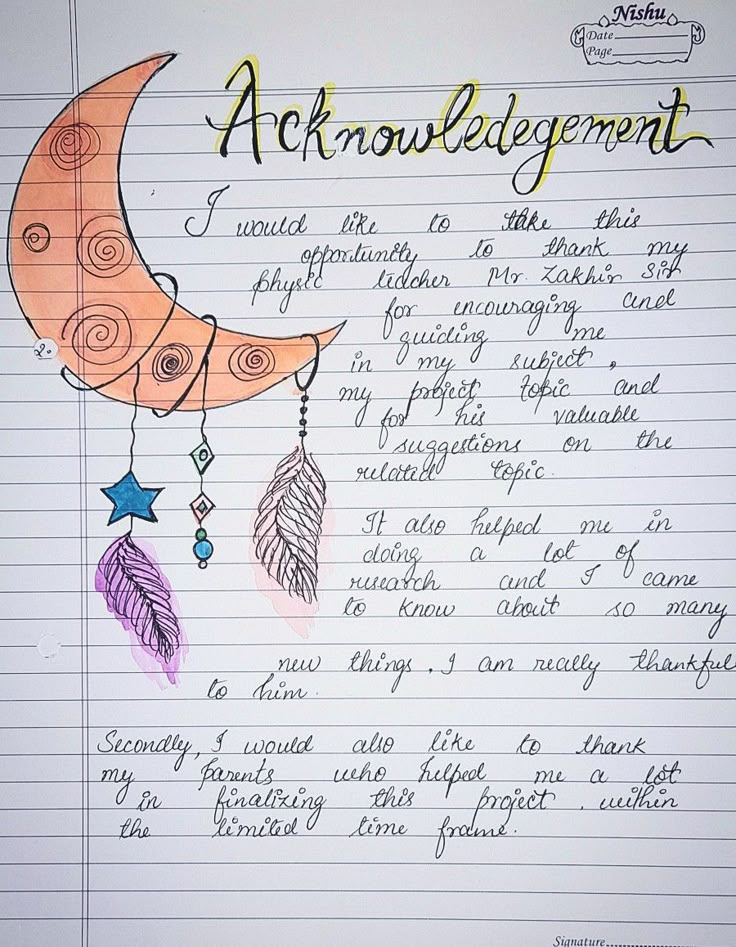 Nishu
Date
Page
Acknowledegement
I would like to take this
opportunity to thank my
physic teacher Mr. Zakhir Sir
for encouraging and
guiding me
in my subject,
my project topic and
for his valuable
suggestions on the
related topic.
It also helped me in
doing a lot of
research and I came
to know about so many
new things. I am really thankful
to him.
Secondly, I would also like to thank
my parents who helped me a lot
in finalizing this project . within
the limited time frame.
2.
Signature